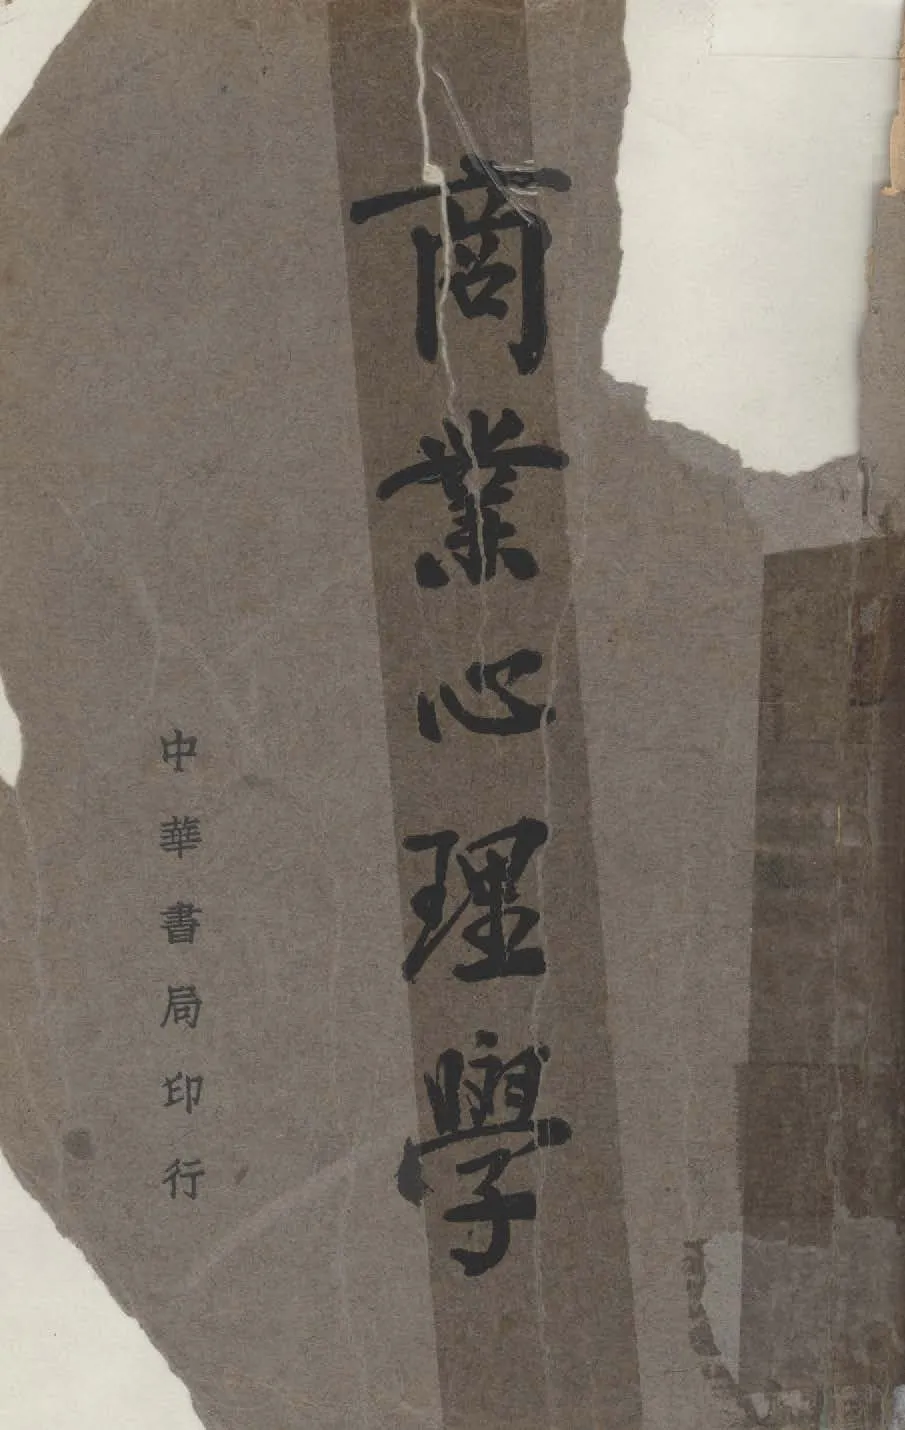 商業心理學
中華書局印行